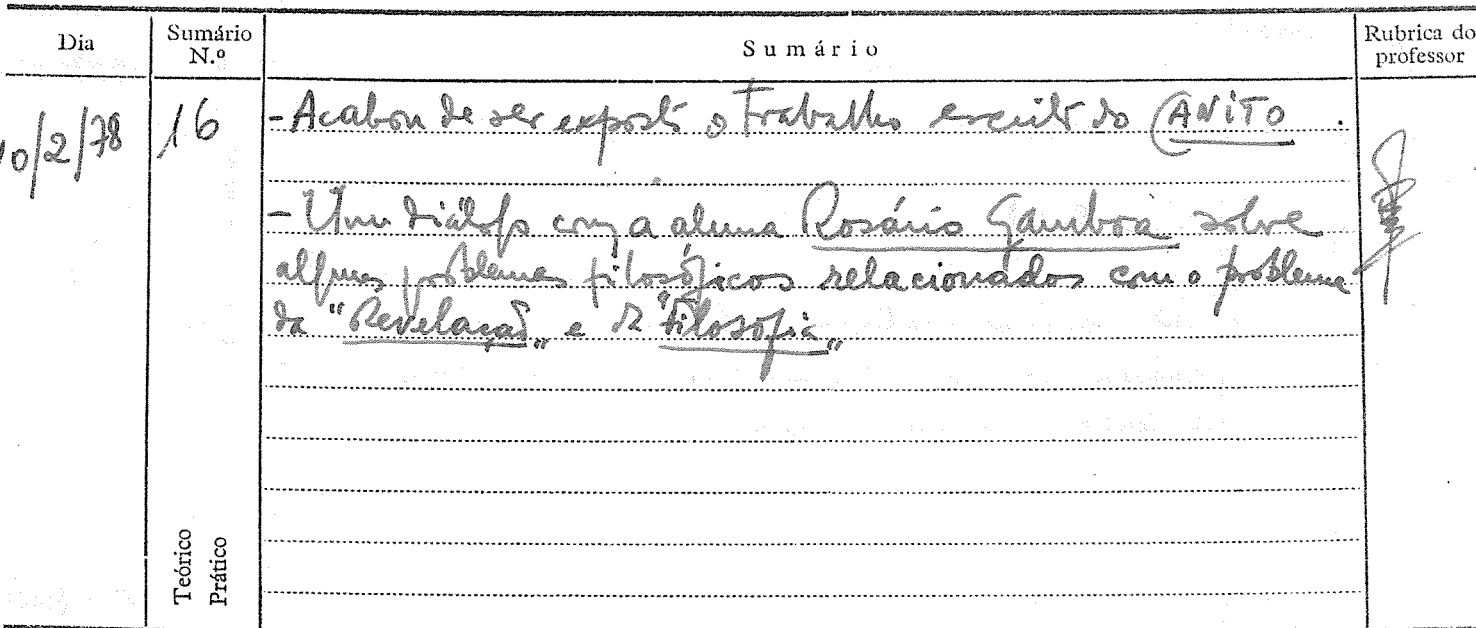 Dia
Sumário N.º
Sumário
Rubrica do professor
10/2/78
16
- Acabou de ser exposto o trabalho escrito do CANITO.
- Um diálogo com a aluna Rosário Gamboa sobre
alguns problemas filosóficos relacionados com o problema
da "Revelação" e da "Filosofia"
Teórico
Prático